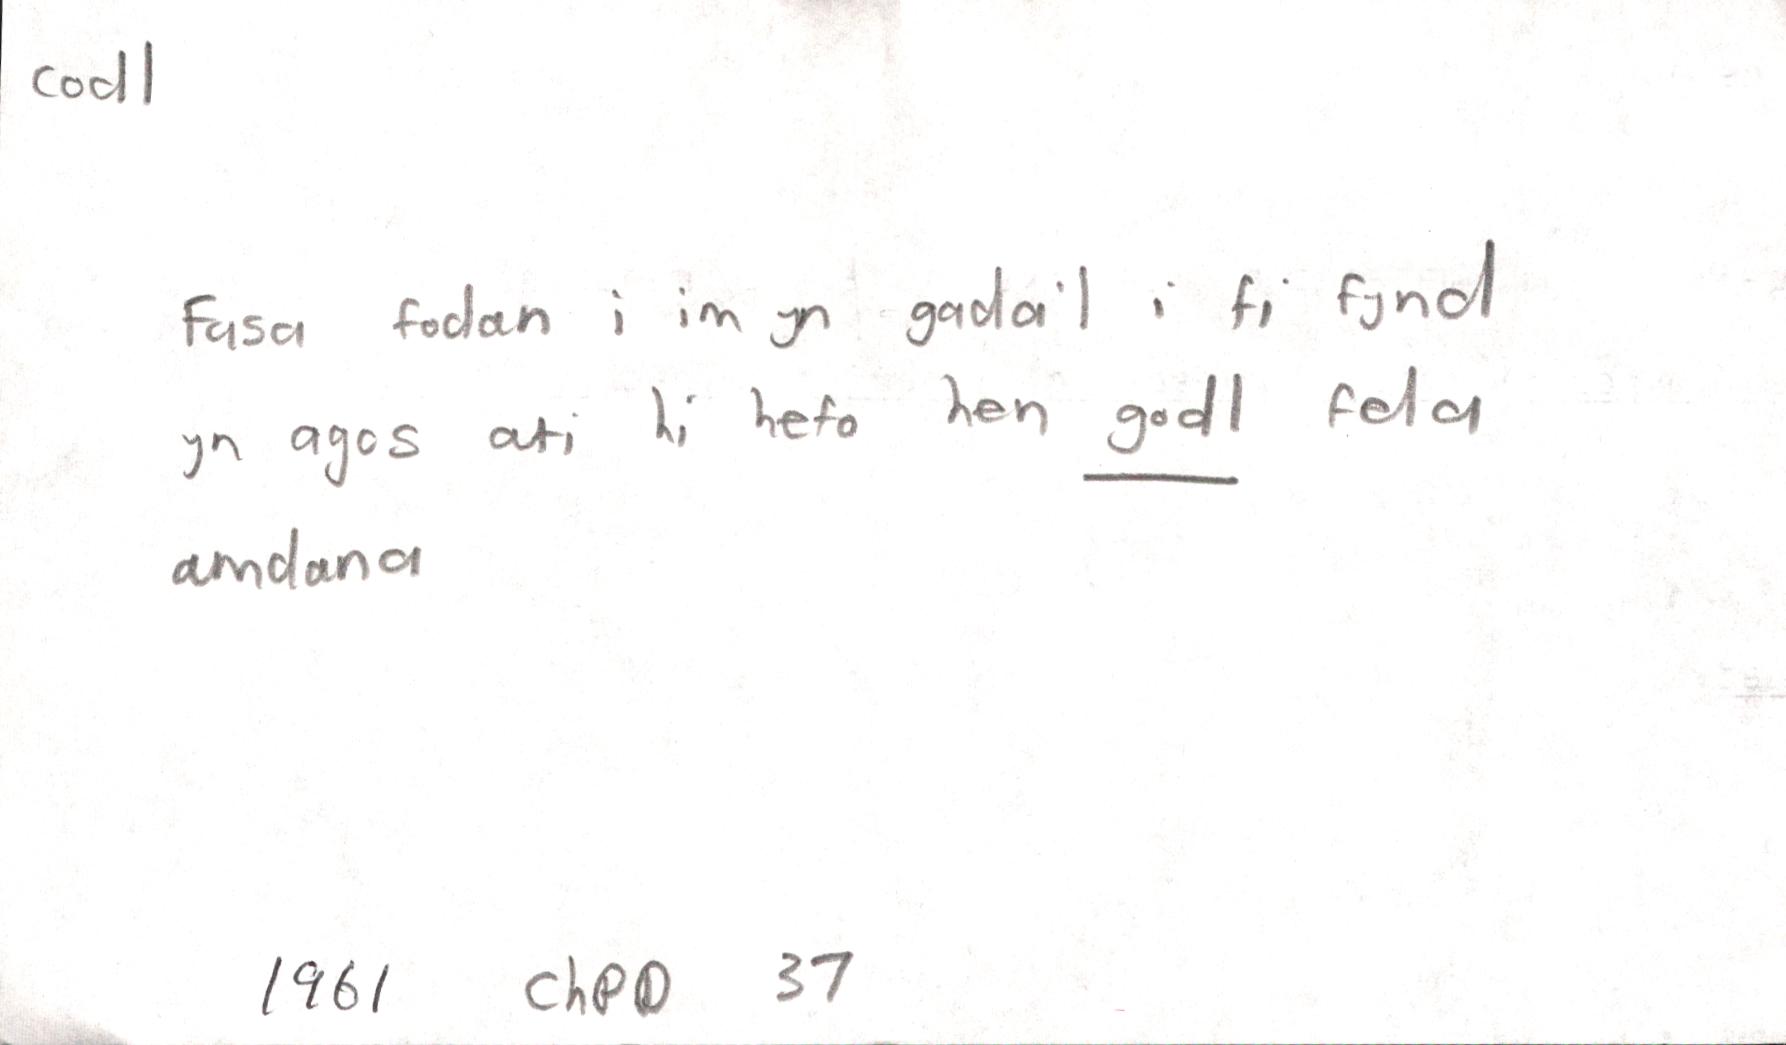 codl
Fasa fodan i im yn gada'l i fi fynd
yn agos ati hi hefo hen godl fela
amdana
1961 ChPD 37